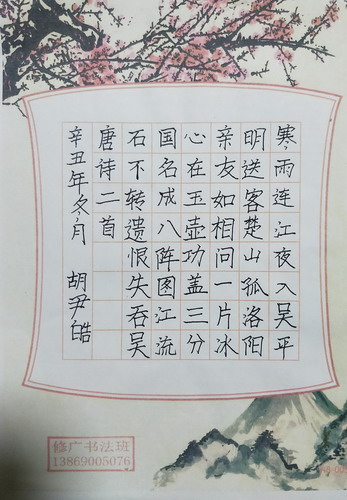 寒雨连江夜入吴平
明送客楚山孤洛阳
亲友如相问一片冰
心在玉壶功盖三分
国名成八阵图江流
石不转遗恨失吞吴
唐诗二首
辛丑年冬月 胡尹皓
修广书法班
13869005076